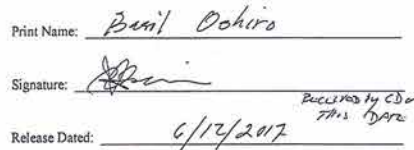 Print Name: Basil Oohiro
Signature:
Received by CD on
This Date
Release Dated: 6/12/2017